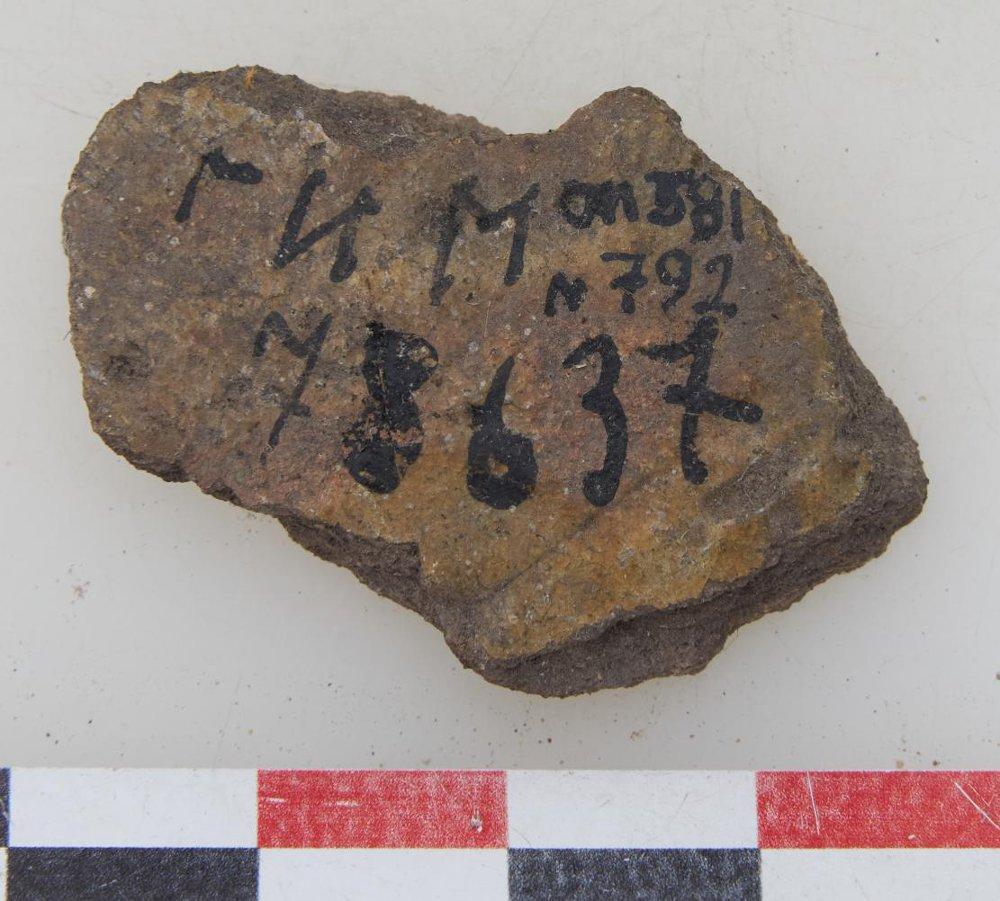 ГИМ оп Б81
№ 792
78637